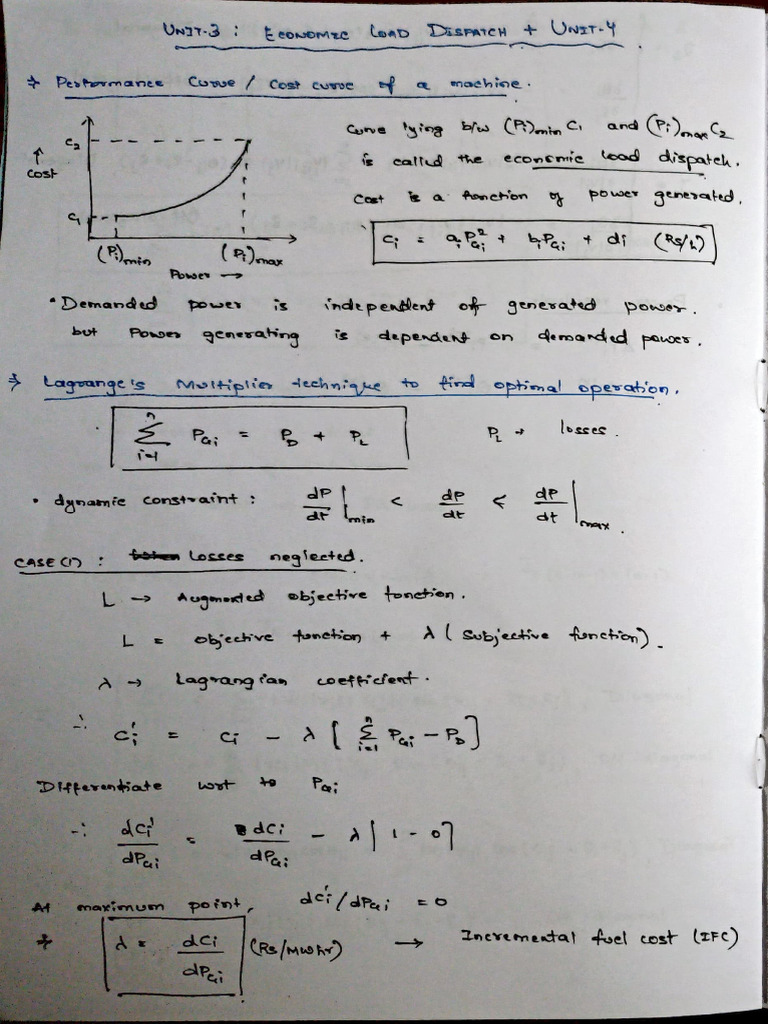 UNIT-3 : ECONOMIC LOAD DISPATCH + UNIT-4
→ Performance Curve / Cost curve of a machine.
C2
↑
Cost
C1
(Pi)min
(Pi)max
Power →
Curve lying b/w (Pi)min C1 and (Pi)max C2
is called the economic load dispatch.
Cost is a function of power generated.
Ci = ai PGi² + bi PGi + di (Rs/h)
• Demanded power is independent of generated power.
but Power generating is dependent on demanded power.
⇒ Lagrange's Multiplier technique to find optimal operation.
n
∑ PGi = PD + PL
i=1
PL → losses.
• dynamic constraint : dP/dt |min < dP/dt < dP/dt |max.
CASE (1) : Losses neglected.
L → Augmented objective function.
L = objective function + λ (Subjective function).
λ → Lagrangian coefficient.
∴ Ci' = Ci - λ [ n∑i=1 PGi - PD ]
Differentiate wrt to PGi
∴ dCi'/dPGi = dCi/dPGi - λ [1 - 0]
At maximum point, dCi'/dPGi = 0
→ λ = dCi/dPGi (Rs/MWhr) → Incremental fuel cost (IFC)